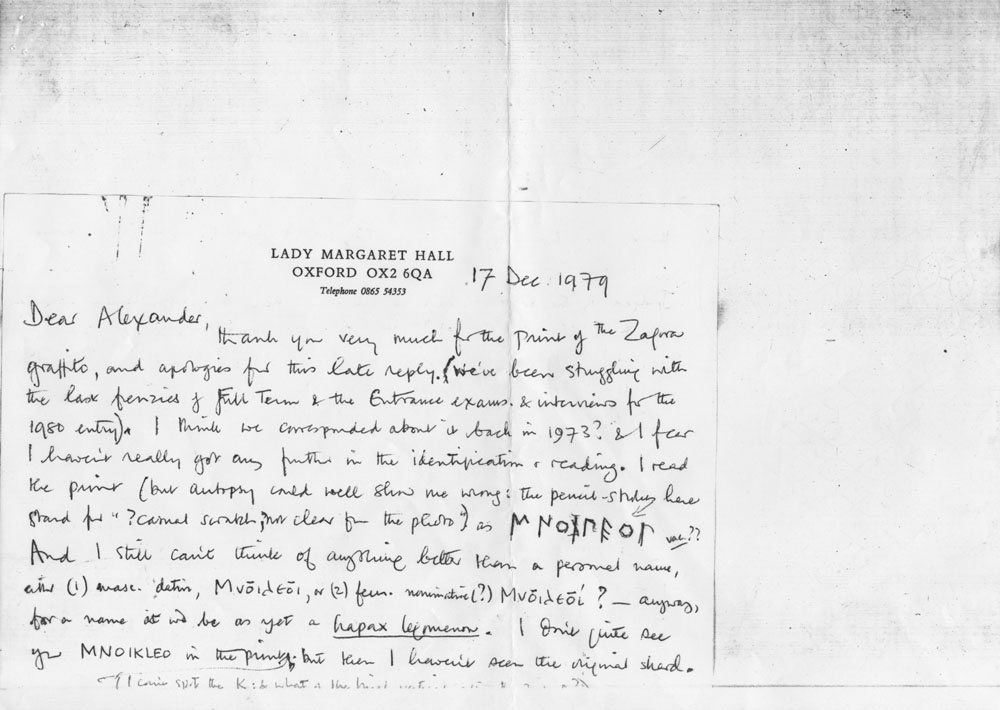 LADY MARGARET HALL
OXFORD OX2 6QA
Telephone 0865 54353
17 Dec 1979
Dear Alexander,
thank you very much for the print of the Zagora
graffito, and apologies for this late reply. (We've been struggling with
the last frenzies of Full Term & the Entrance exams. & interviews for the
1980 entry). I think we corresponded about it back in 1973? & I fear
I haven't really got any further in the identification & reading. I read
the print (but autopsy could well show me wrong: the pencil-strokes here
stand for "?casual scratch, not clear from the photo") as
vac.??
And I still can't think of anything better than a personal name,
either (1) masc. dative, Μνο̄ιλεο̄ι, or (2) fem. nominative(?) Μνο̄ιλεο̄ί ? — anyway,
for a name it wd be as yet a hapax legomenon. I don't quite see
yr MNOIKLEO in the print, but then I haven't seen the original sherd.
I can't spot the K: & what is the